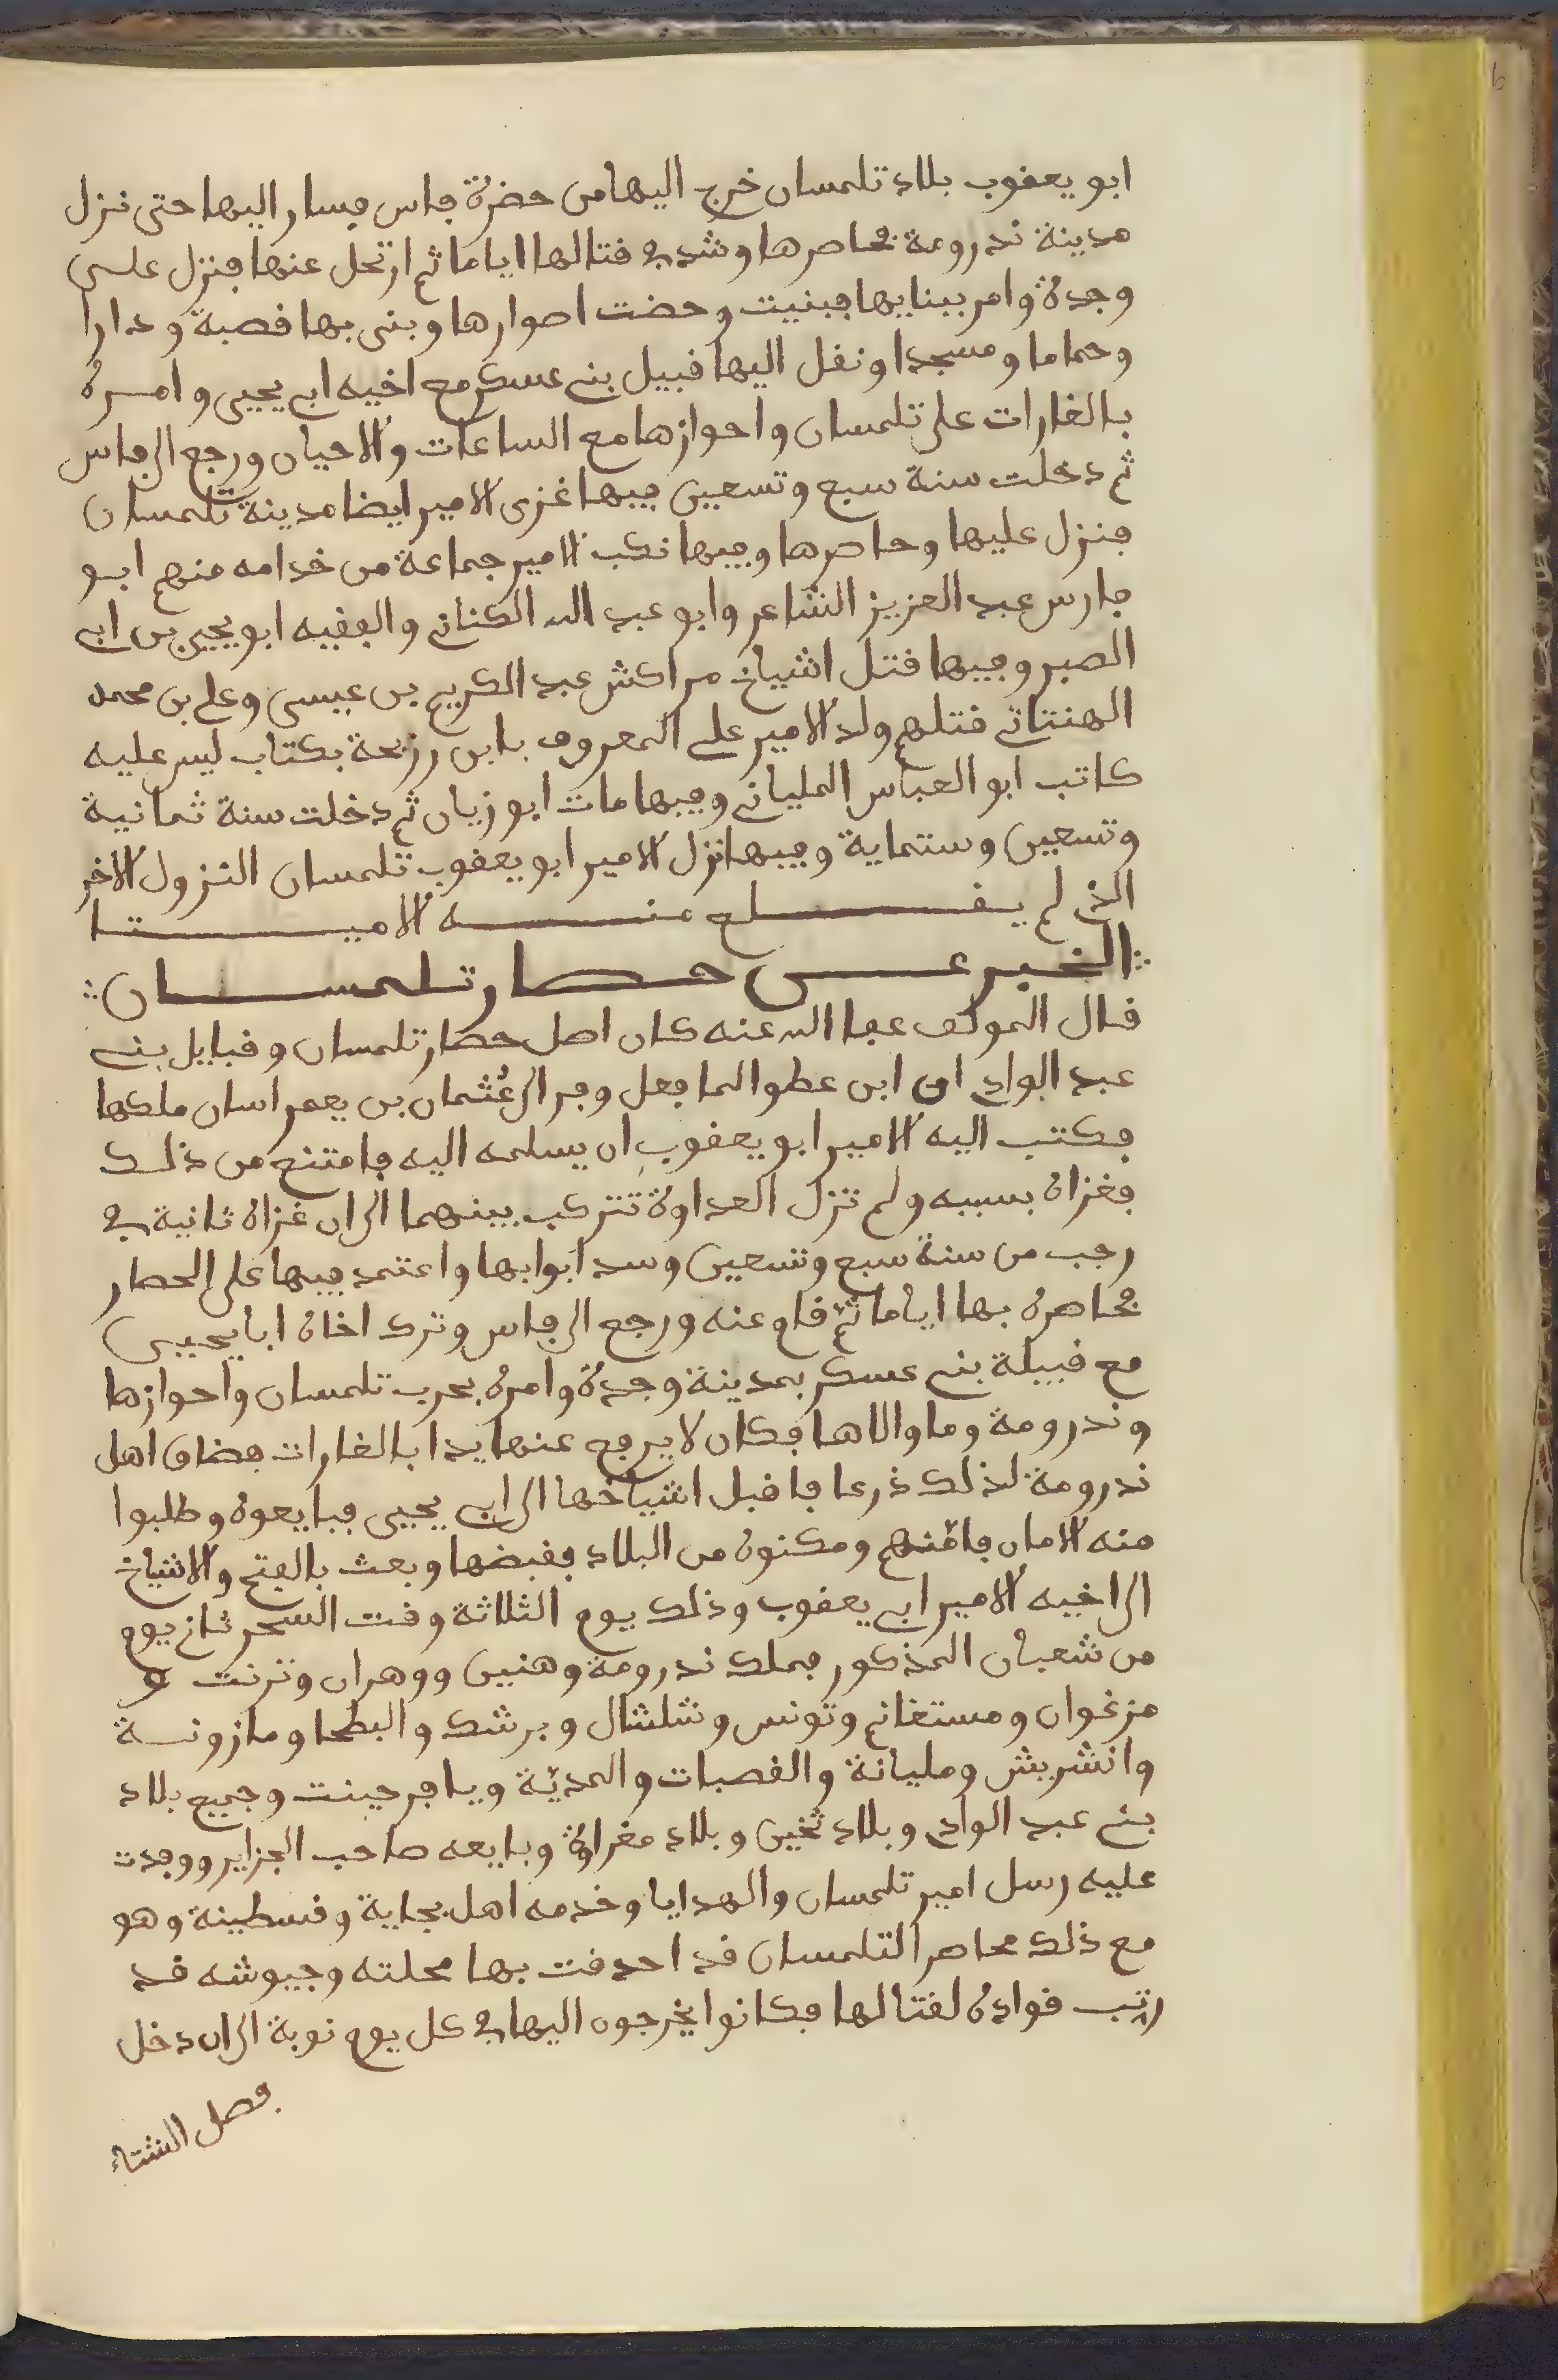 ابو يعقوب بلاد تلمسان خرج اليها من حضرة فاس فسار اليها حتى نزل
مدينة ندرومة فحاصرها وشد في قتالها اياما ثم ارتحل عنها فنزل على
وجدة وامر ببنايها فبنيت وحضت اصوارها وبنى بها قصبة ودارا
وحماما ومسجدا ونقل اليها قبيل بني عسكر مع اخيه ابي يحيى وامره
بالغارات على تلمسان واحوازها مع الساعات والاحيان ورجع الى فاس
ثم دخلت سنة سبع وتسعين فيها غزى الامير ايضا مدينة تلمسان
فنزل عليها وحاصرها وفيها نكب الامير جماعة من خدامه منهم ابو
فارس عبد العزيز الشاعر وابو عبد الله الكناني والفقيه ابو يحيى بن ابي
الصبر وفيها قتل اشياخ مراكش عبد الكريم بن عيسى وعلي بن محمد
الهنتاتي قتلهم ولد الامير علي المعروف بابن رزيجة بكتاب لبس عليه
كاتب ابو العباس الملياني وفيها مات ابو زيان ثم دخلت سنة ثمانية
وتسعين وستماية وفيها نزل الامير ابو يعقوب تلمسان النزول الاخر
الذي لم يقلع منه الا ميتا
الخبر عن حصار تلمسان
قال المولف عفا الله عنه كان اصل حصار تلمسان وقبايل بني
عبد الوادي ان ابن عطوا لما فعل وفر الى عثمان بن يعمراسان ملكها
فكتب اليه الامير ابو يعقوب ان يسلمه اليه فامتنع من ذلك
فغزاه بسببه ولم تزل العداوة تتركب بينهما الى ان غزاه ثانية في
رجب من سنة سبع وتسعين وسد ابوابها واعتمد فيها على الحصار
فحاصره بها اياما ثم قام عنه ورجع الى فاس وترك اخاه ابا يحيى
مع قبيلة بني عسكر بمدينة وجدة وامره بحرب تلمسان واحوازها
وندرومة وما والاها فكان لا يرفع عنها يدا بالغارات فضاق اهل
ندرومة لذلك ذرعا فاقبل اشياخها الى ابي يحيى فبايعوه وطلبوا
منه الامان فامنهم ومكنوه من البلاد فقبضها وبعث بالفتح والاشياخ
الى اخيه الامير ابي يعقوب وذلك يوم الثلاثة وقت السحر ثاني يوم
من شعبان المذكور فملك ندرومة وهنين ووهران وترنت و
مزغران ومستغانم وتونس وشلشال وبرشك والبطحا ومازونة
وانشريش ومليانة والقصبات والمدية ويافرجينت وجميع بلاد
بني عبد الوادي وبلاد تجين وبلاد مغراوة وبايعه صاحب الجزاير ووفدت
عليه رسل امير تلمسان والهدايا وخدمه اهل بجاية وقسطينة وهو
مع ذلك محاصرا لتلمسان قد احدقت بها محلته وجيوشه قد
رتب قواده لقتالها فكانوا يخرجون اليها في كل يوم نوبة الى ان دخل
فصل الشتاء